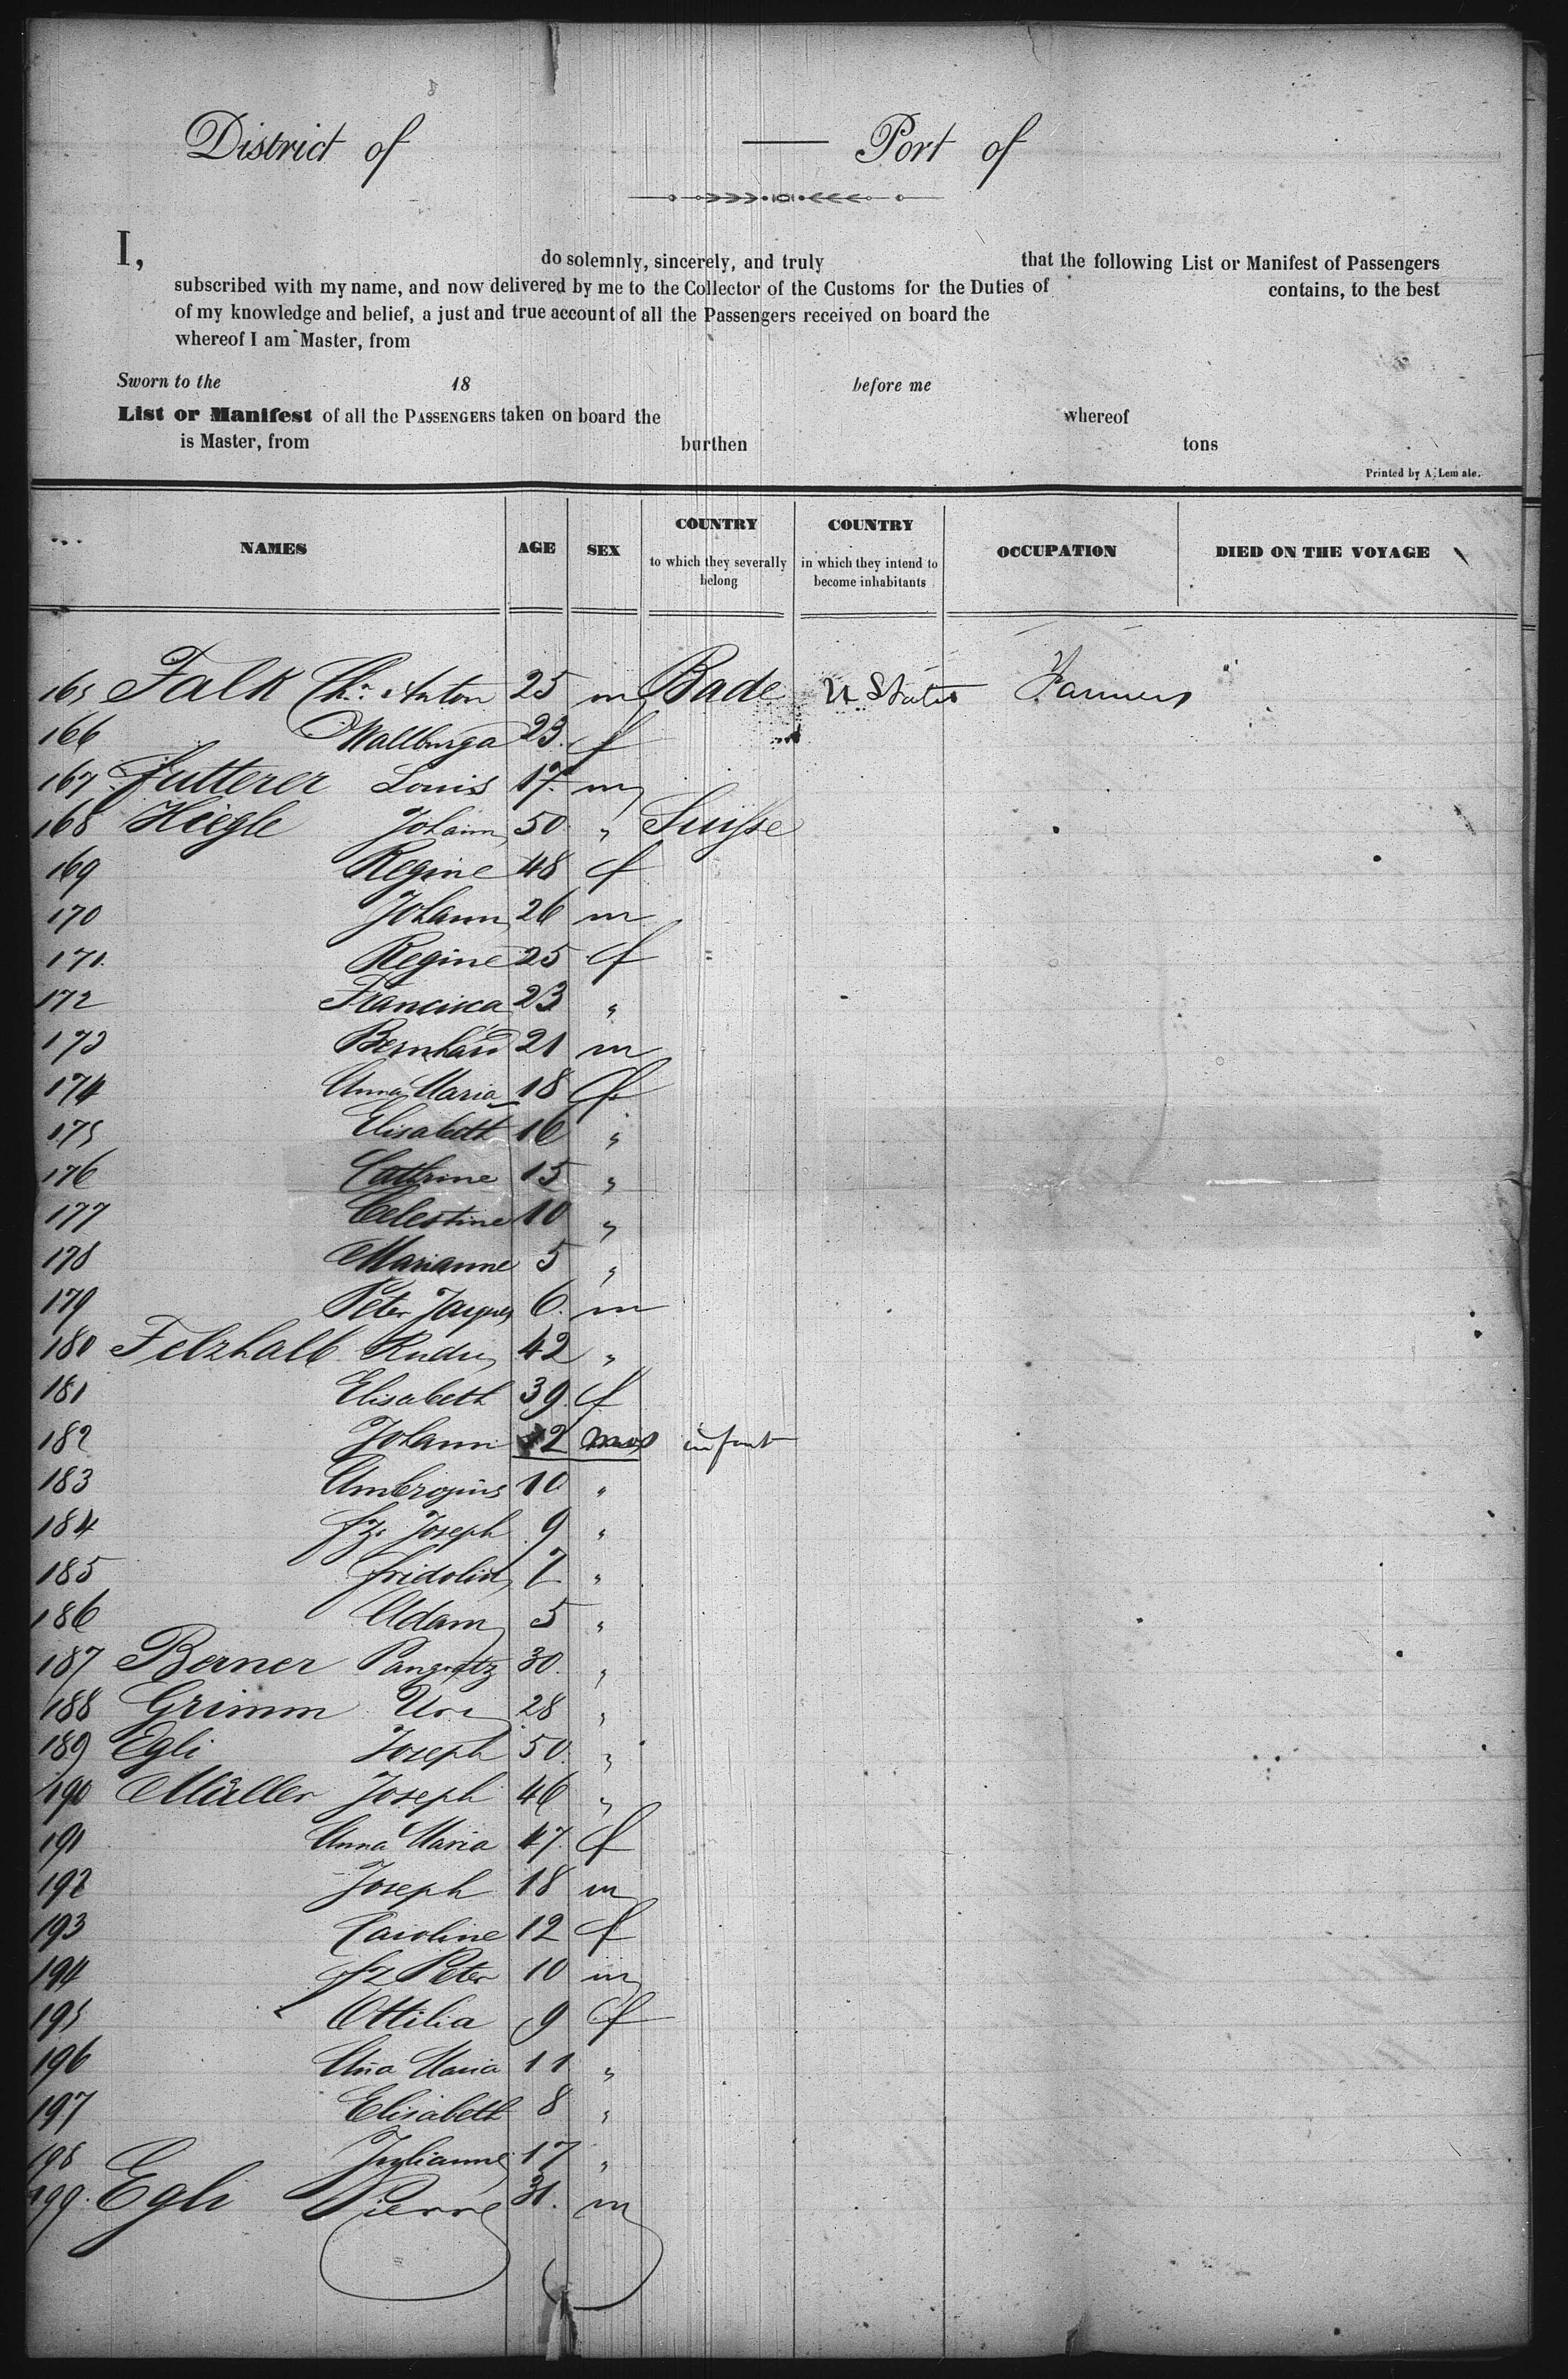 District of — Port of
I, do solemnly, sincerely, and truly that the following List or Manifest of Passengers
subscribed with my name, and now delivered by me to the Collector of the Customs for the Duties of contains, to the best
of my knowledge and belief, a just and true account of all the Passengers received on board the
whereof I am Master, from
Sworn to the 18 before me
List or Manifest of all the PASSENGERS taken on board the whereof
is Master, from burthen tons
Printed by A. Lemale.
NAMES AGE SEX COUNTRY to which they severally belong COUNTRY in which they intend to become inhabitants OCCUPATION DIED ON THE VOYAGE
165 Falk Chr. Anton 25 m Bade U States Farmers
166 Wallburga 23. f
167 Futterer Louis 17. m
168 Hiegle Johann 50 " Suisse
169 Regine 48 f
170 Johann 26 m
171. Regine 25 f
172 Francisca 23 "
173 Bernhard 21 m
174 Anna Maria 18 f
175 Elisabeth 16 "
176 Cathrine 15 "
177 Celestine 10 "
178 Marianne 5 "
179 Peter Jaques 6. m
180 Felzhalb 42 "
181 Elisabeth 39. f
182 Johann 2 infant
183 Ambrosius 10 "
184 fz. Joseph 9 "
185 fridolin 7 "
186 Adam 5 "
187 Berner Pangratz 30. "
188 Grimm 28 "
189 Egli Joseph 50. "
190 Müller Joseph 46 "
191 Anna Maria 47. f
192 Joseph 18 m
193 Caroline 12 f
194 fz Peter 10 m
195 Ottilia 9 f
196 Aña Maria 11 "
197 Elisabeth 8 "
198 Julianne 17 "
199. Egli Pierre 31. m